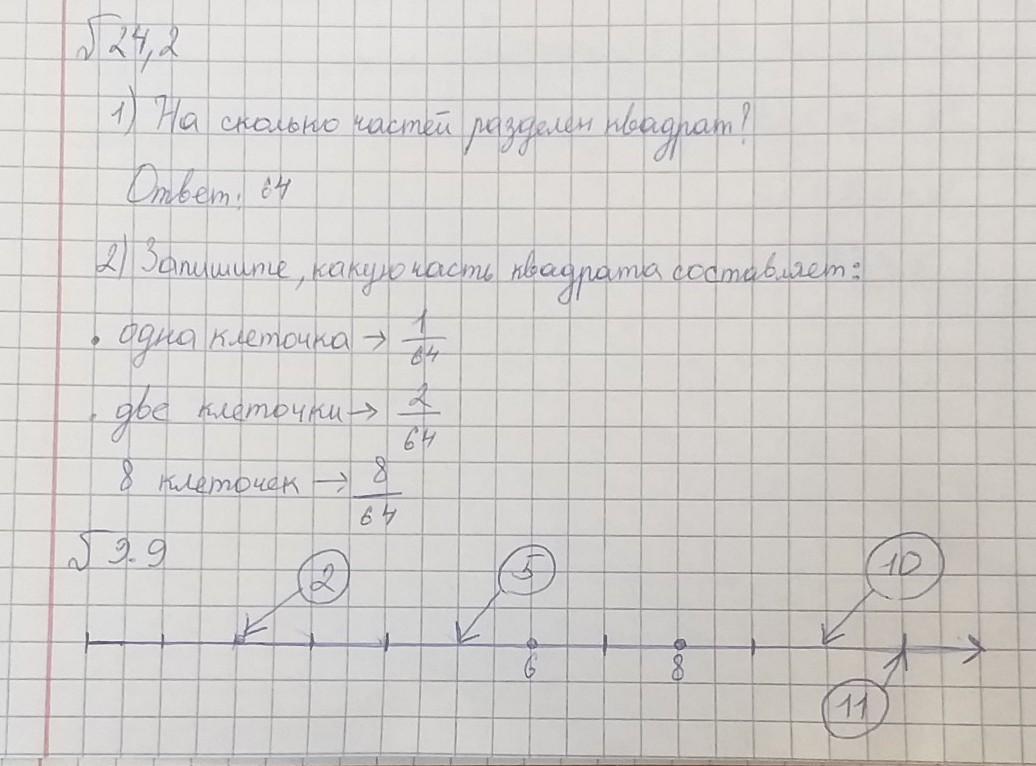 √24,2
1) На сколько частей разделен квадрат?
Ответ: 64
2) Запишите, какую часть квадрата составляет:
• одна клеточка → 1/64
• две клеточки → 2/64
8 клеточек → 8/64
√9.9
2 5 10
6 8
11